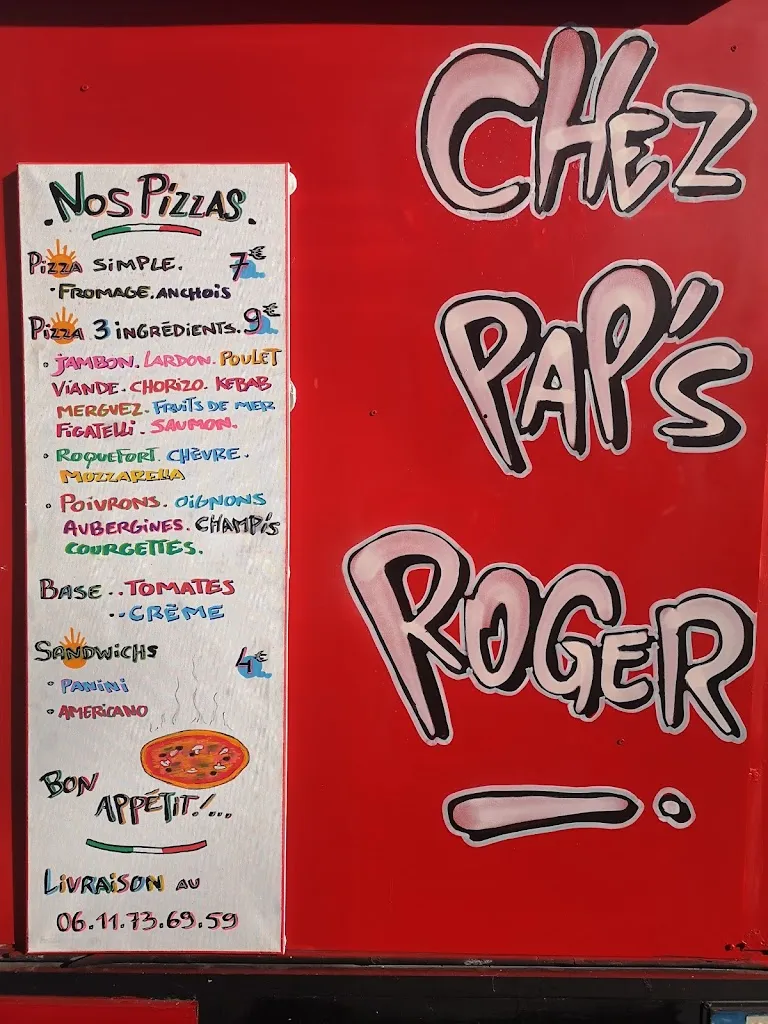 CHEZ
PAP'S
ROGER
.NOS PIZZAS.
PIZZA SIMPLE. 7€
·FROMAGE.ANCHOIS
PIZZA 3 INGRÉDIENTS. 9€
·JAMBON. LARDON. POULET
VIANDE. CHORIZO. KEBAB
MERGUEZ. FRUITS DE MER
FIGATELLI. SAUMON.
·ROQUEFORT. CHÈVRE.
MOZZARELLA
·POIVRONS. OIGNONS
AUBERGINES. CHAMPI'S
COURGETTES.
BASE..TOMATES
..CRÈME
SANDWICHS 4€
·PANINI
·AMERICANO
BON
APPÉTIT!...
LIVRAISON AU
06.11.73.69.59